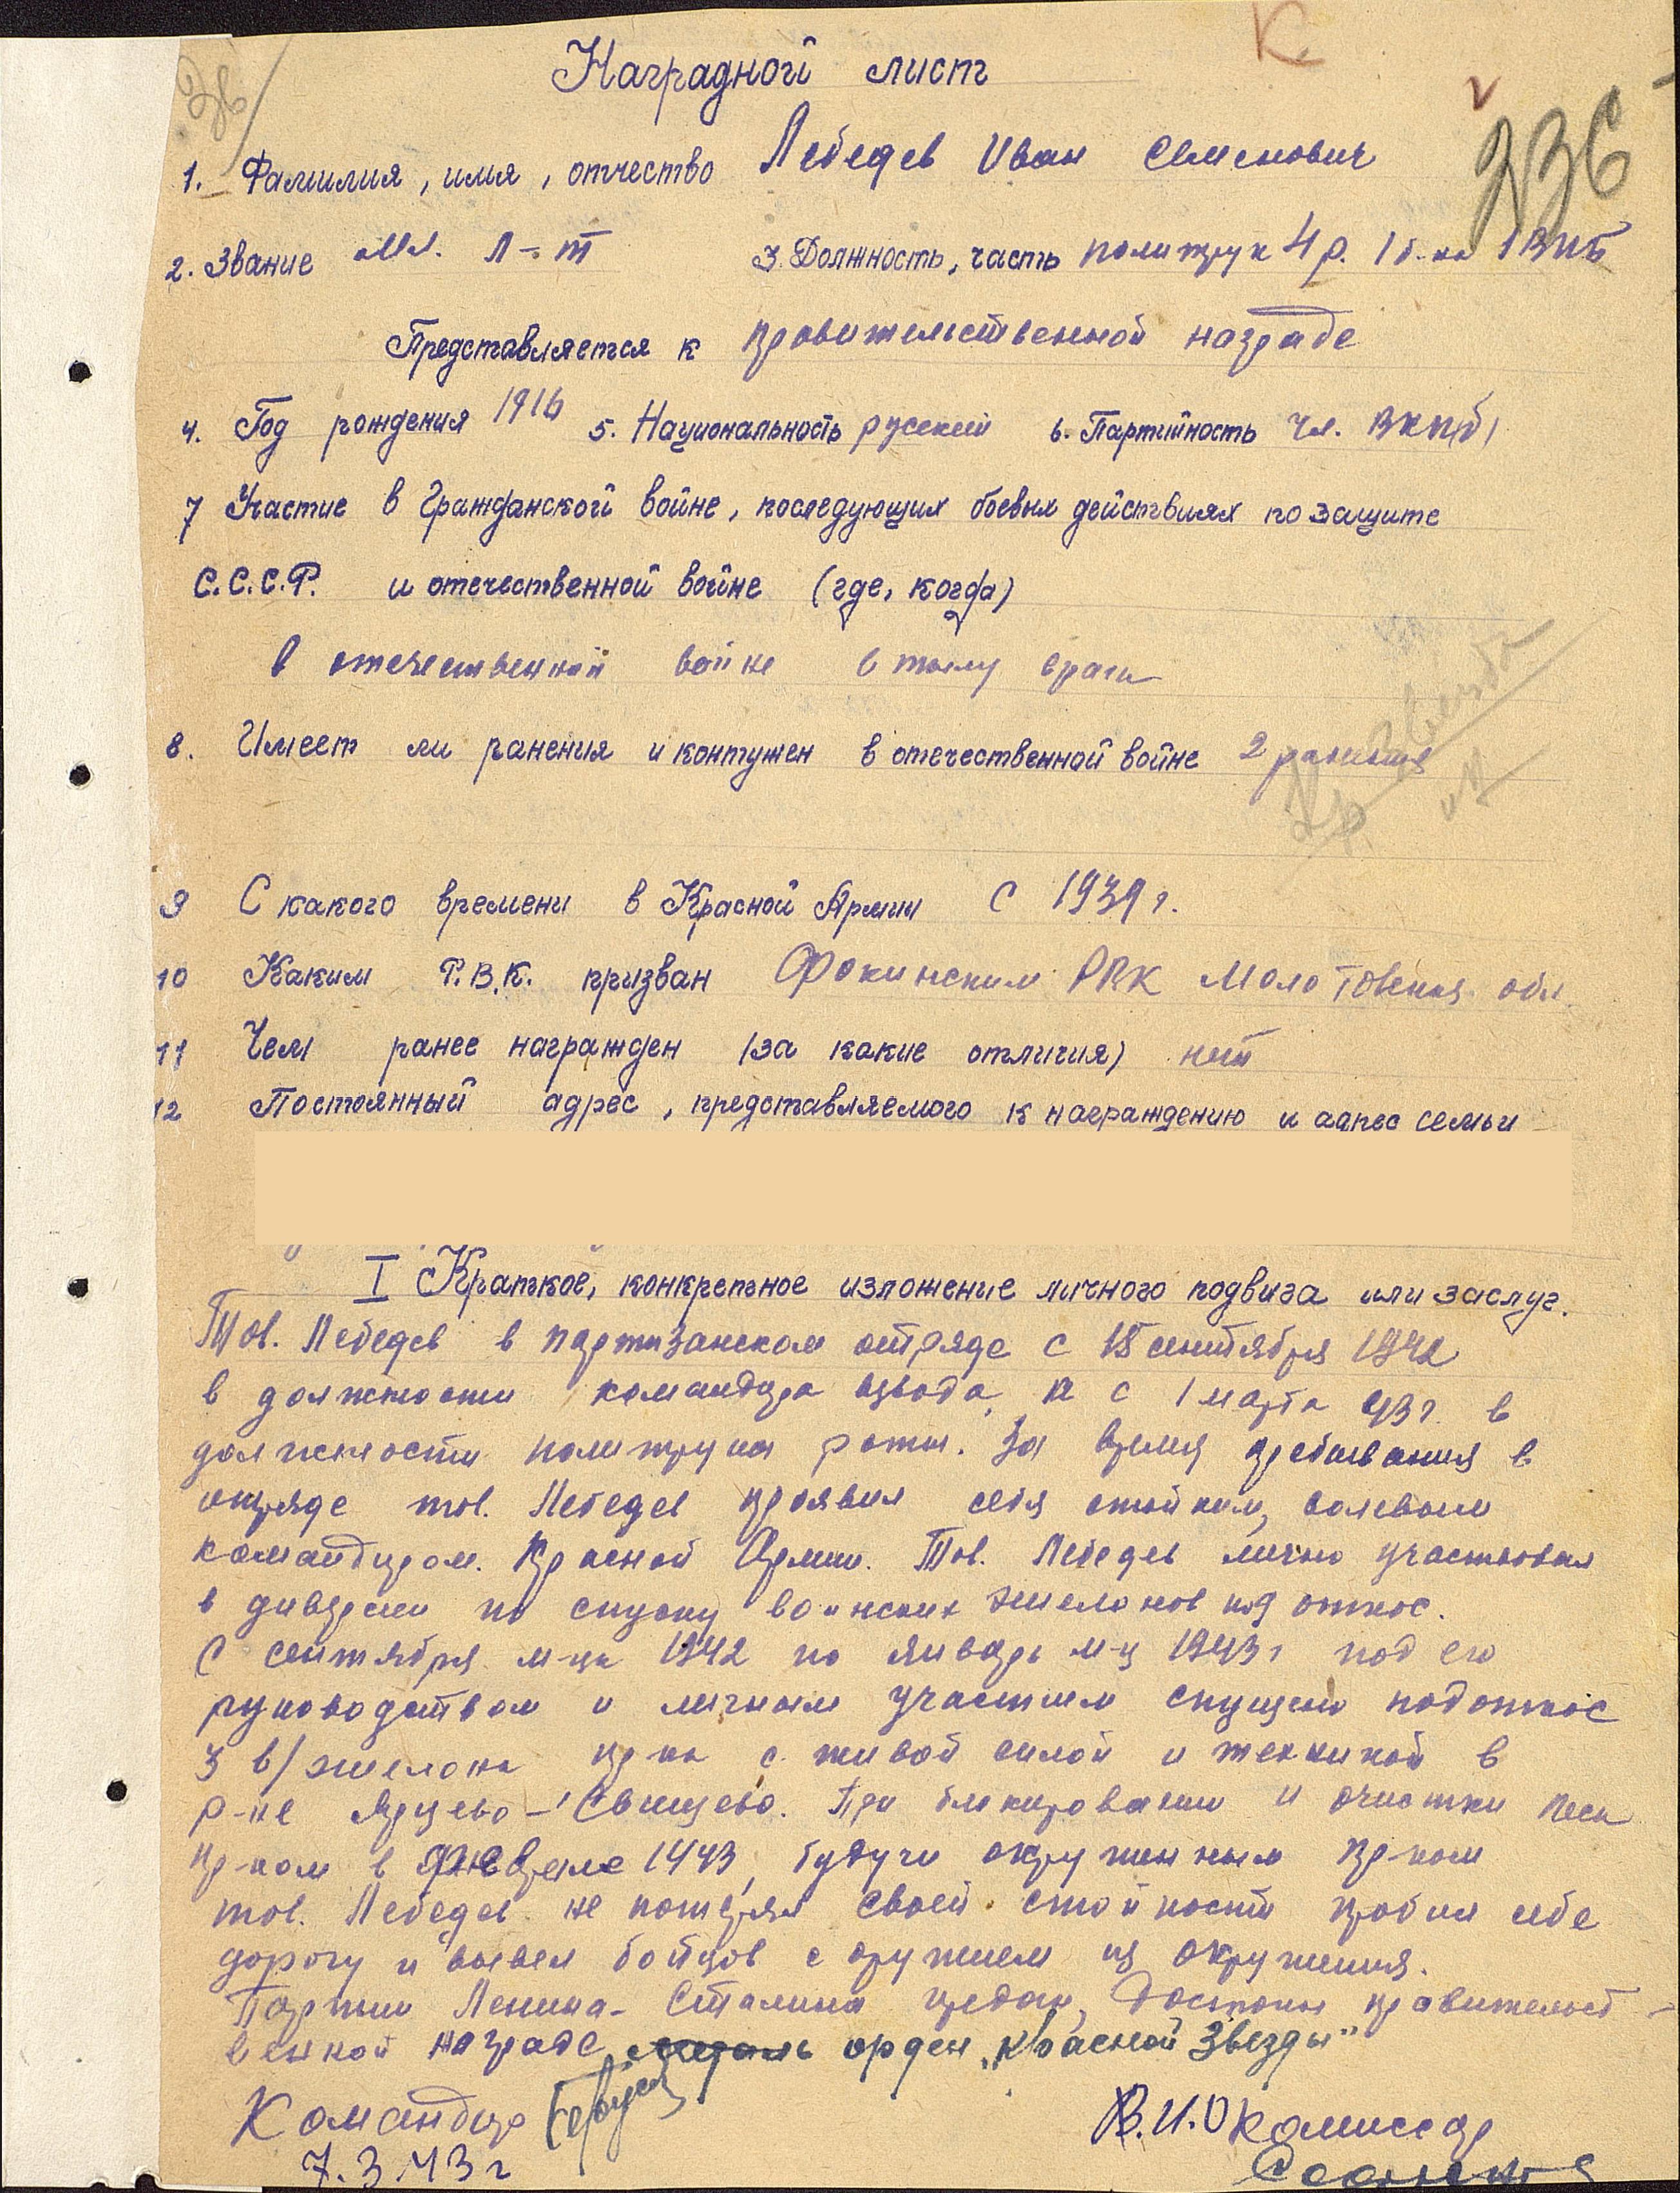 К.
236
Наградной лист
1. Фамилия, имя, отчество Лебедев Иван Семенович
2. Звание Мл. Л-т 3. Должность, часть политрук 4 р. 1 б-на 1 ВПБ
Представляется к правительственной награде
4. Год рождения 1916 5. Национальность русский 6. Партийность чл. ВКП(б)
7 Участие в Гражданской войне, последующих боевых действиях по защите
С.С.С.Р. и отечественной войне (где, когда)
в отечественной войне в тылу врага
8. Имеет ли ранения и контужен в отечественной войне 2 ранения
Кр. звезда
9 С какого времени в Красной Армии с 1939 г.
10 Каким Р.В.К. призван Фокинским РВК Молотовская обл.
11 Чем ранее награжден (за какие отличия) нет
12 Постоянный адрес, представляемого к награждению и адрес семьи
I Краткое, конкретное изложение личного подвига или заслуг.
Тов. Лебедев в партизанском отряде с 15 сентября 1942
в должности командира взвода, и с 1 марта 43 г. в
должности политрука роты. За время пребывания в
отряде тов. Лебедев проявил себя стойким, волевым
командиром Красной Армии. Тов. Лебедев лично участвовал
в диверсии по спуску воинских эшелонов под откос.
С сентября м-ца 1942 по январь м-ц 1943 г под его
руководством и личным участием спущено под откос
3 в/эшелона пр-ка с живой силой и техникой в
р-не Ярцево - Свищево. При блокировании и очистки леса
пр-ком в феврале 1943, будучи окруженным пр-ком
тов. Лебедев не потерял своей стойкости пробил себе
дорогу и вывел бойцов с оружием из окружения.
Партии Ленина - Сталина предан, достоин правительст-
венной награде медаль орден "Красной Звезды"
Командир
7.3.43 г
В.И.О комиссар